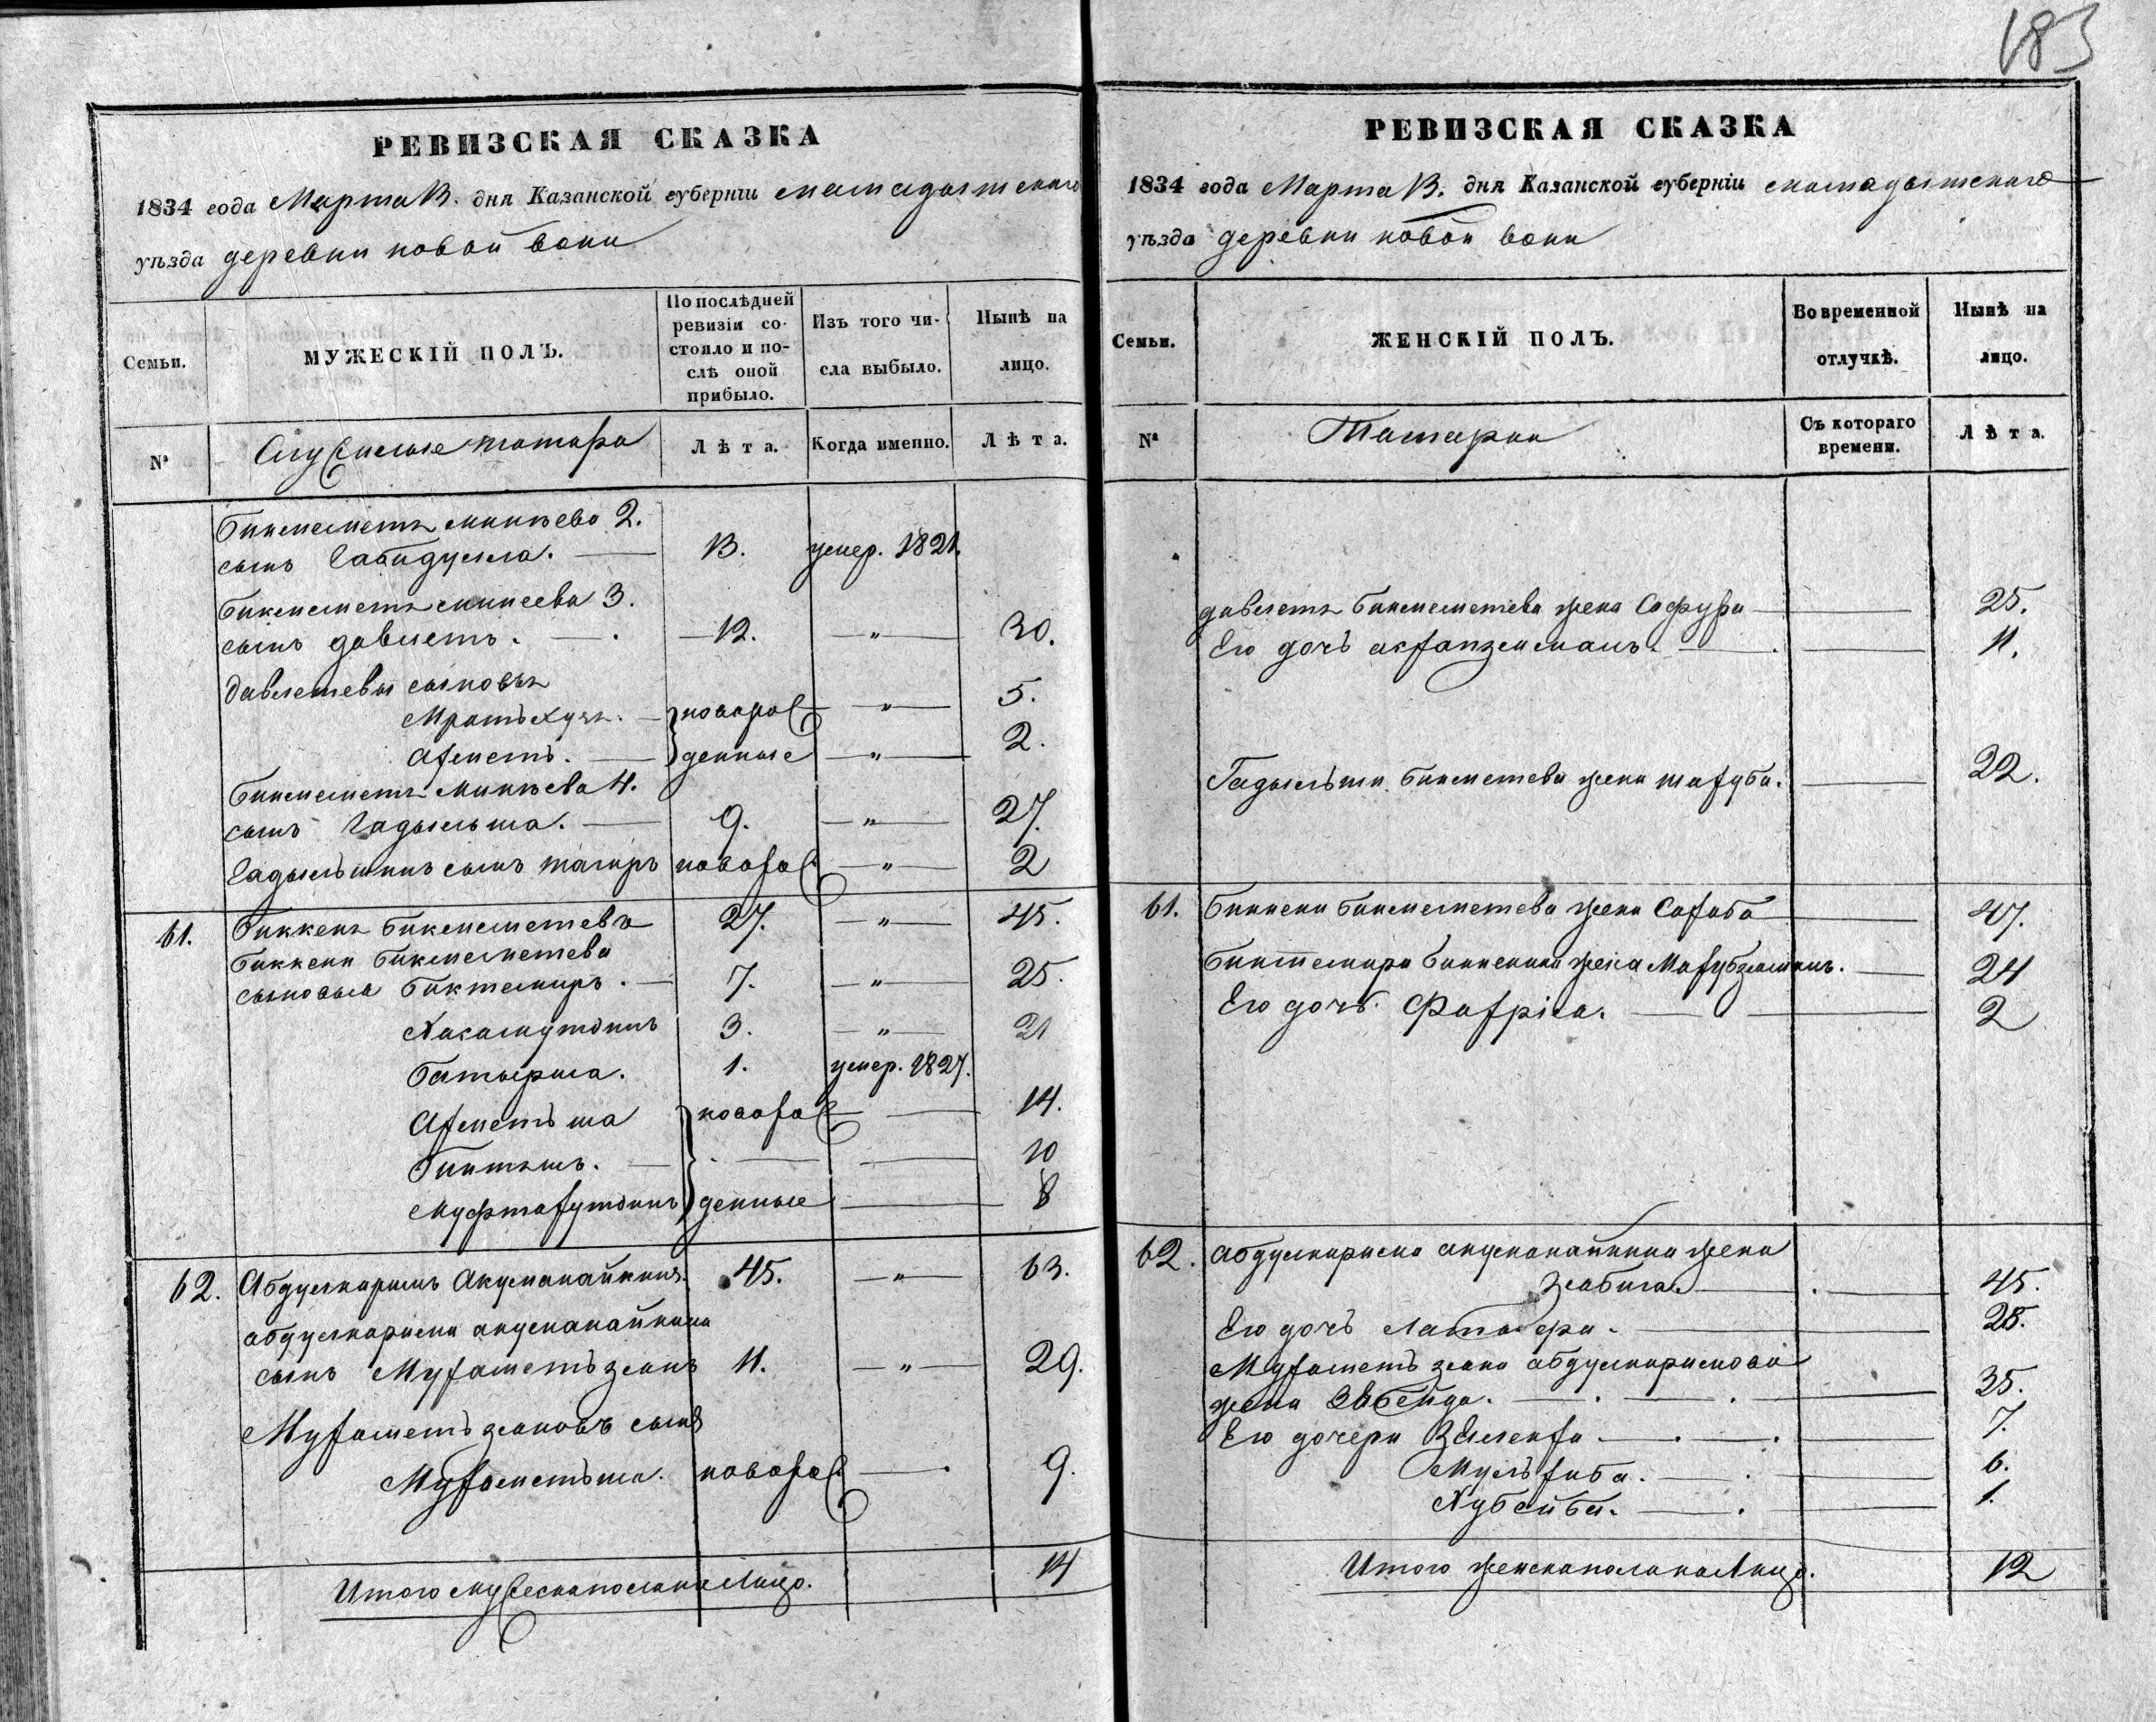 183
РЕВИЗСКАЯ СКАЗКА
1834 года Марта 13. дня Казанской губерніи мамадышскаго
уѣзда деревни новой
Семьи.
МУЖЕСКІЙ ПОЛЪ.
По послѣдней ревизіи со-
стояло и по-
слѣ оной
прибыло.
Изъ того чи-
сла выбыло.
Нынѣ на
лицо.
№
Служилые татара
Лѣта.
Когда именно.
Лѣта.
бикмеметъ минкеева 2.
сынъ Габидулла. 13. умер. 1821.
бикмеметъ минкеева 3.
сынъ давлетъ. 12. " 30.
давлетевы сыновья
новорож " 5.
Ахметъ. денные " 2.
бикмеметъ минкеева 4.
сынъ Гадыльша. 9. " 27.
Гадыльшинъ сынъ тагиръ новорож " 2
61. биккень бикмеметевъ 27. " 45.
биккени бикмеметева
сыновья биктемиръ. 7. " 25.
3. " 21
батырша. 1. умер. 1827.
Ахметьша новорож 14.
10
Муфтахутдинъ денные 8
62. Абдулкаримъ 45. " 63.
абдулкарима
сынъ Мухаметьзянъ 11. " 29.
Мухаметьзяновъ сынъ
Мухаметьша. новорож 9.
Итого мужеска пола на лицо. 14
РЕВИЗСКАЯ СКАЗКА
1834 года Марта 13. дня Казанской губерніи мамадышскаго
уѣзда деревни новой
Семьи.
ЖЕНСКІЙ ПОЛЪ.
Во временной
отлучкѣ.
Нынѣ на
лицо.
№
Татарки
Съ котораго
времени.
Лѣта.
давлетъ бикмеметева жена Сафура 25.
Его дочь 11.
Гадыльши бикметева жена махуба. 22.
61. биккени бикмеметева жена Сахиба 47.
биктемира биккенина жена Махубзяманъ. 24
Его дочь Фахрія. 2
62. абдулкарима жена
Зябида. 45.
Его дочь 28.
Мухаметьзяна абдулкаримова
жена 35.
Его дочери 7.
6.
Хубейба. 1.
Итого женска пола на лицо. 12